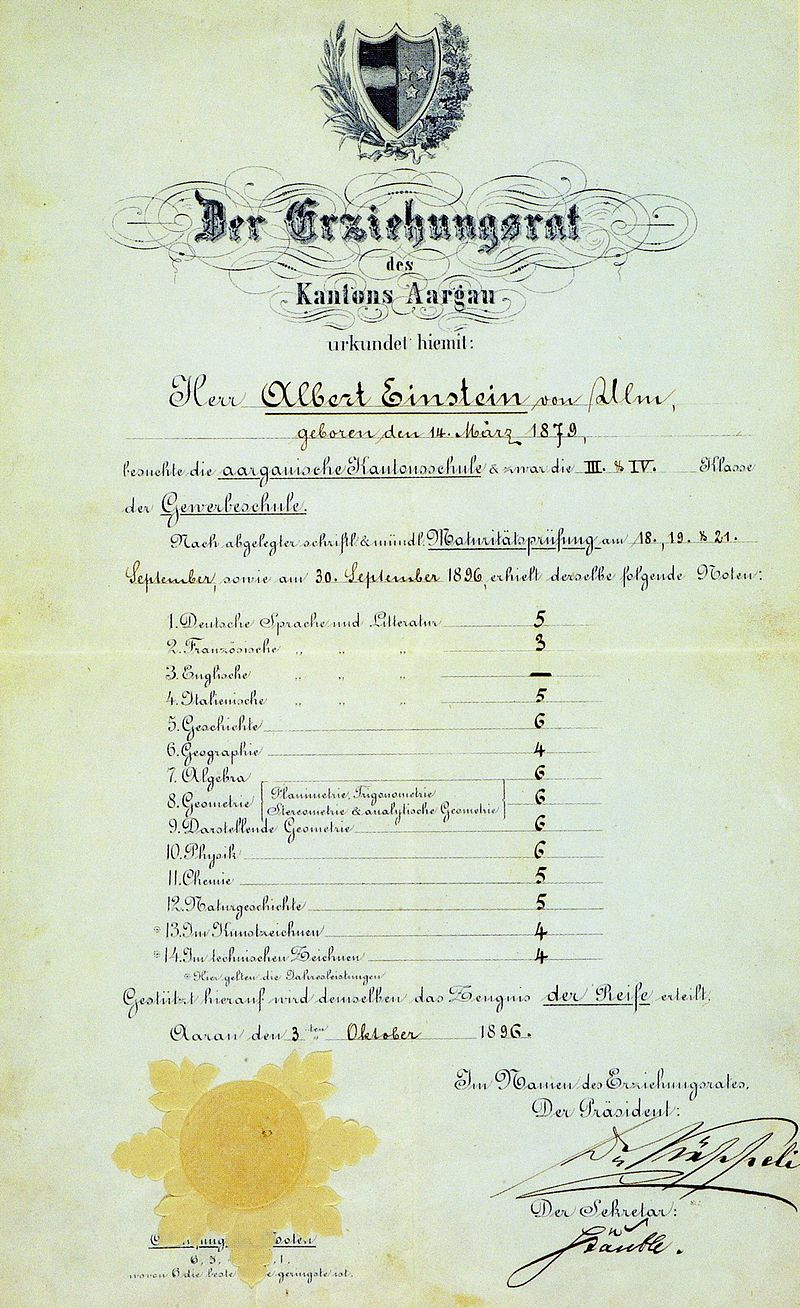 Der Erziehungsrat
des
Kantons Aargau
urkundet hiemit:
Herr Albert Einstein von Ulm,
geboren den 14. März 1879,
besuchte die aargauische Kantonsschule & zwar die III. & IV. Klasse
der Gewerbeschule.
Nach abgelegter schriftl. & mündl. Maturitätsprüfung am 18., 19. & 21.
September, sowie am 30. September 1896, erhielt derselbe folgende Noten:
1. Deutsche Sprache und Litteratur 5
2. Französische „ „ „ 3
3. Englische „ „ „ —
4. Italienische „ „ „ 5
5. Geschichte 6
6. Geographie 4
7. Algebra 6
8. Geometrie Planimetrie, Trigonometrie 6
Stereometrie & analytische Geometrie
9. Darstellende Geometrie 6
10. Physik 6
11. Chemie 5
12. Naturgeschichte 5
* 13. Im Kunstzeichnen 4
* 14. Im technischen Zeichnen 4
* Hier gelten die Jahresleistungen
Gestützt hierauf wird demselben das Zeugnis der Reife erteilt.
Aarau den 3ten Oktober 1896.
Im Namen des Erziehungsrates,
Der Präsident:
Dr Käppeli
Der Sekretär:
Stäuble.
Noten
6, 5, 1.
wovon 6 die beste geringste ist.